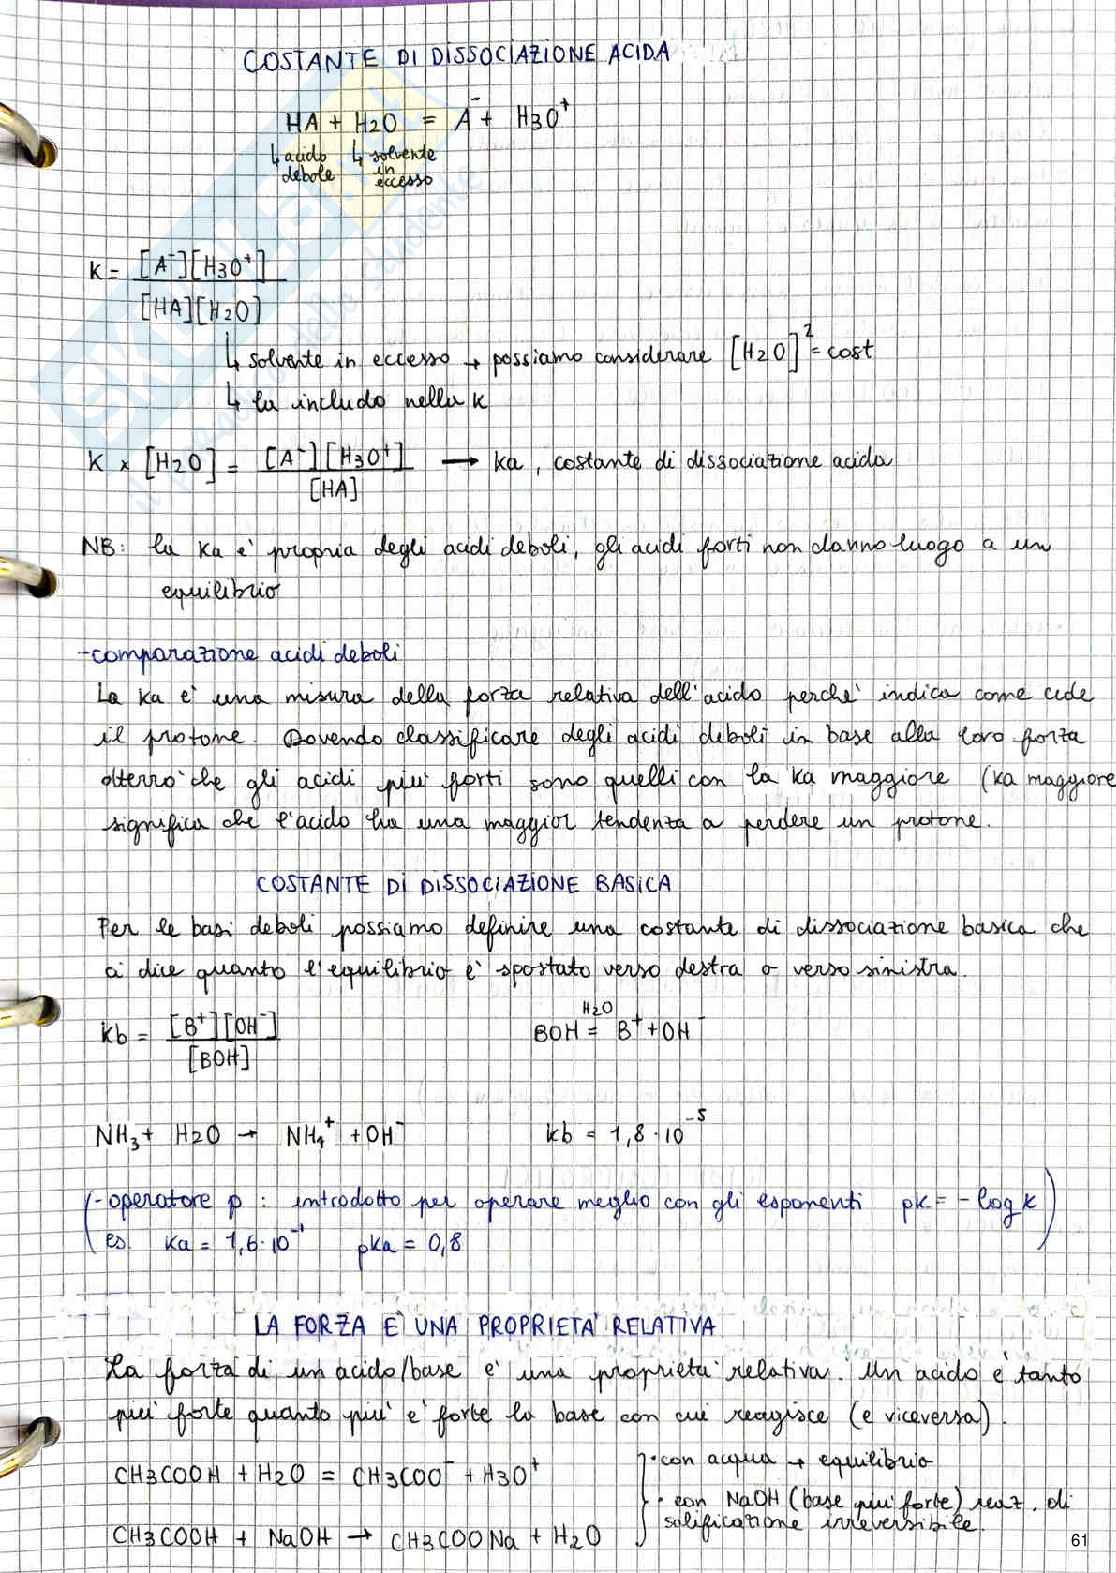 COSTANTE DI DISSOCIAZIONE ACIDA
HA + H2O = A⁻ + H3O⁺
↳ acido debole ↳ solvente in eccesso
K = [A⁻][H3O⁺] / [HA][H2O]
↳ solvente in eccesso → possiamo considerare [H2O]² = cost
↳ la includo nella K
K × [H2O] = [A⁻][H3O⁺] / [HA] → Ka, costante di dissociazione acida
NB: la Ka è propria degli acidi deboli, gli acidi forti non danno luogo a un
equilibrio
-comparazione acidi deboli
La Ka è una misura della forza relativa dell'acido perchè indica come cede
il protone. Dovendo classificare degli acidi deboli in base alla loro forza
otterrò che gli acidi più forti sono quelli con la Ka maggiore (Ka maggiore
significa che l'acido ha una maggior tendenza a perdere un protone.
COSTANTE DI DISSOCIAZIONE BASICA
Per le basi deboli possiamo definire una costante di dissociazione basica che
ci dice quanto l'equilibrio è spostato verso destra o verso sinistra.
Kb = [B⁺][OH⁻] / [BOH] BOH =(H2O) B⁺ + OH⁻
NH3 + H2O → NH4⁺ + OH⁻ Kb = 1,8·10⁻⁵
(-operatore p : introdotto per operare meglio con gli esponenti pK = -log K)
es. Ka = 1,6·10⁻¹ pKa = 0,8
LA FORZA È UNA PROPRIETÀ RELATIVA
La forza di un acido/base è una proprietà relativa. Un acido è tanto
più forte quanto più è forte la base con cui reagisce (e viceversa).
CH3COOH + H2O = CH3COO⁻ + H3O⁺ • con acqua → equilibrio
• con NaOH (base più forte) reaz. di
salificazione irreversibile.
CH3COOH + NaOH → CH3COONa + H2O
61